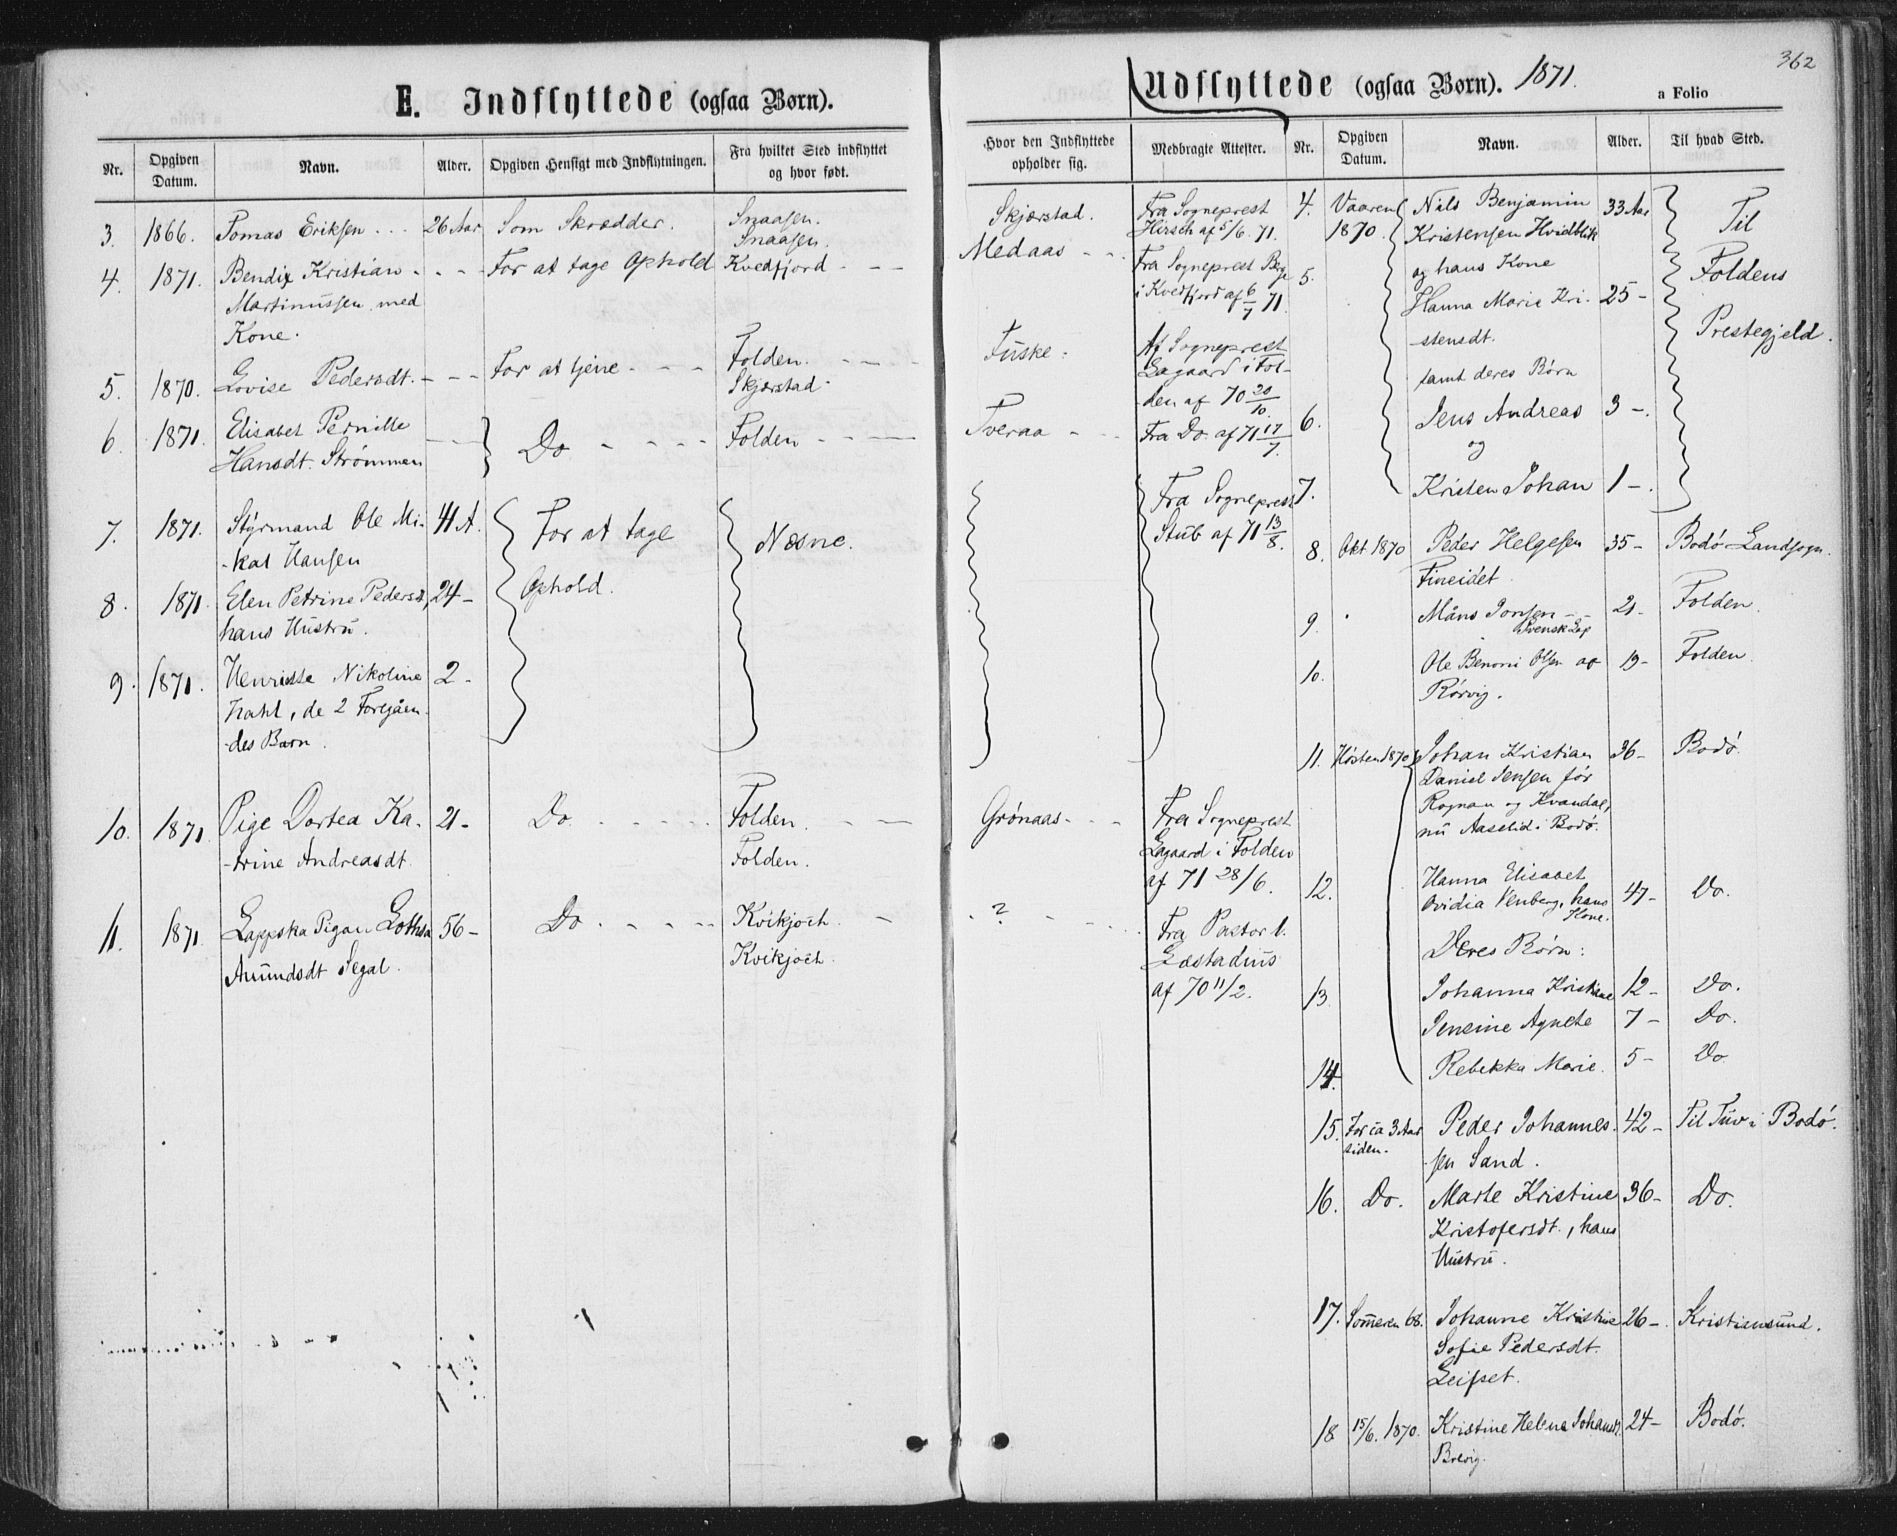 362
E. Indflyttede (ogsaa Børn).
Nr. Opgiven Datum. Navn. Alder. Opgiven Hensigt med Indflytningen. Fra hvilket Sted indflyttet og hvor født.
3. 1866. Tomas Eriksen . . . 26 Aar Som Skrædder. Snaasen.
Snaasen.
4. 1871. Bendix Kristian - - - - For at tage Ophold Kvedfjord - - -
Martinussen med
Kone.
5. 1870. Lovise Pedersdt. - - - For at tjene - - - Folden. - - -
Skjærstad.
6. 1871. Elisabet Pernille - - - Do - - - - Folden - - - -
Hansdt. Strømmen
7. 1871. Styrmand Ole Mi- 41 A. For at tage Næsne.
-kal Hansen
8. 1871. Elen Petrine Pedersdt, 24 - Ophold.
hans Hustru.
9. 1871. Henriette Nikoline 2 -
Kahl, de 2 Foregåen-
-des Barn.
10. 1871. Pige Dortea Ka- 21 - Do. - - - - - Folden. - - -
-trine Andreasdt Folden.
11. 1871. Lappska Pigan 56 - Do - - - - - Kvikjoch. -
Amundsdt Segal. Kvikjoch.
Udflyttede (ogsaa Børn). 1871. a Folio
Hvor den Indflyttede opholder sig. Medbragte Attester. Nr. Opgiven Datum. Navn. Alder. Til hvad Sted.
Skjærstad. Fra Sogneprest
Hirsch af 5/6. 71.
Medaas - - - Fra Sogneprest Berge
i Kvedfjord af 6/7 71.
Fuske. Af Sogneprest
Lagaard i Fol-
-den af 70 20/10.
Tveraa - - - Fra Do. af 71 17/7.
Fra Sogneprest
Stub af 71 13/8.
Grønaas - - - Fra Sogneprest
Lagaard i Folden
af 71 28/6.
. ? - - - Fra Pastor l.
Læstadius
af 70 11/2.
4. Vaaren Nils Benjamin 33 Aar Til
1870. Kristensen Hvidblik
og hans Kone Foldens
5. Hanna Marie Kri- 25 -
-stensdt. Prestegjeld.
samt deres Børn
6. Jens Andreas 3 -.
og
7. Kristen Johan 1 -.
8. Okt 1870 Peder Helgesen 35 - Bodø Landsogn.
Fineidet.
9. Måns Jonsen - - 21 - Folden.
Svensk Lap
10. Ole Benoni Olsen 19 - Folden.
Rørvig.
11. Høsten 1870 Johan Kristian 36 - Bodø.
Daniel Jensen før
Rognan og Kvandal,
nu Aaselid i Bodø.
12. Hanna Elisabet
Ovidia Venberg, hans 47 - Do.
Kone.
Deres Børn:
13. Johanna Kristiane 12 - Do.
Jensine Agnete 7 - Do.
14. Rebekka Marie. 5 - Do
15. For ca 3 Aar Peder Johannes- 42 - Til Tuv i Bodø.
siden. -sen Sand.
16. Do. Marte Kristine 36 - Do.
Kristofersdt., hans
Hustru.
17. Sommeren 68. Johanne Kristine 26 -. Kristiansund.
Sofie Pedersdt.
Leifset.
18 15/6. 1870. Kristine Helene Johansdt. 24 - Bodø.
Brevig.